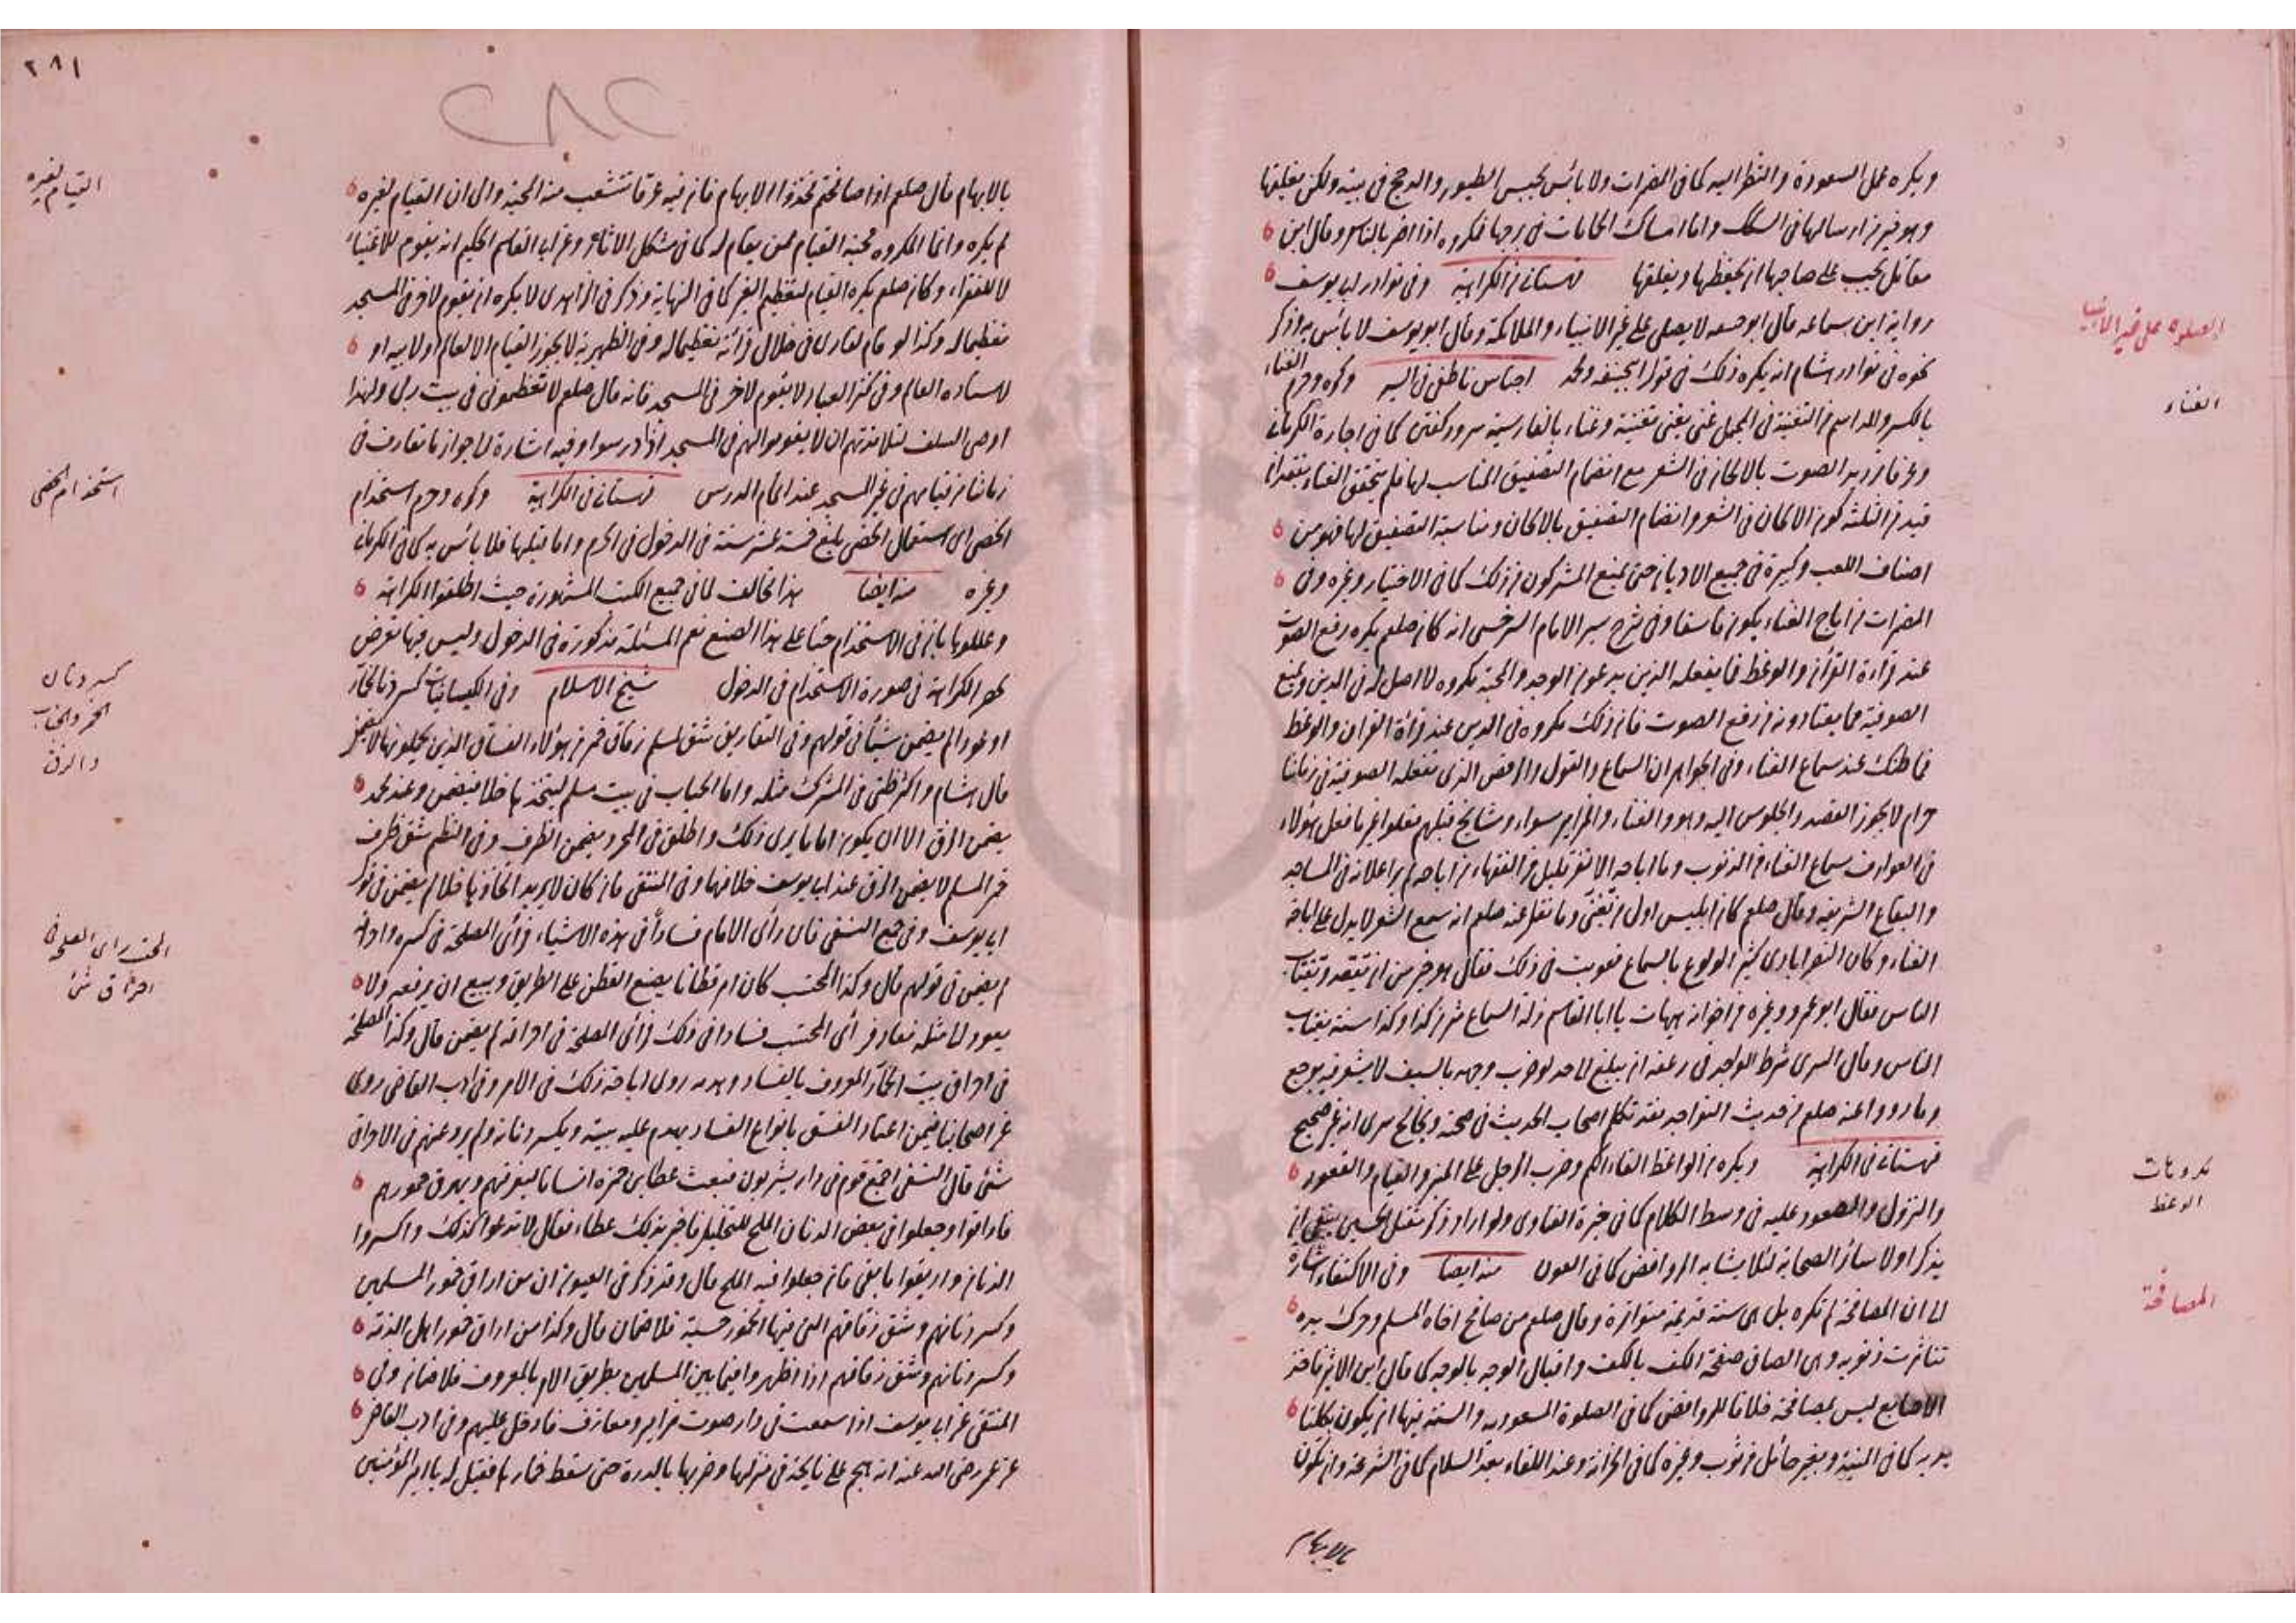 ويكره عمل السعوذة والنظر اليه كما في المضمرات ولا بأس بحبس الطيور والدجج في بيته ولكن يعلفها
وهو خير من ارسالها في السكك واما امساك الحمامات في برجها فمكروه اذا اضر بالناس وقال ابن
مقاتل يجب على صاحبها ان يحفظها ويعلفها قهستاني في الكراهية وفي نوادر ابي يوسف
الصلوة على غير الانبيا
رواية ابن سماعه قال ابو حنيفه لا يصلى على غير الانبياء والملائكة وقال ابو يوسف لا بأس به وذكر
نحوه في نوادر هشام انه يكره ذلك في قول ابي حنيفه ومحمد اجناس ناطفي في السير وكره وحرم الغناء
الغناء
بالكسر والمد اسم من التغنية في المجمل غنى يغني تغنية وغناء بالفارسية سرود كفتن كما في اجارة الكرماني
وعرفا ترديد الصوت بالالحان في الشعر مع انضمام التصفيق المناسب لها فلم يتحقق الغناء بفقدان
قيد من الثلثة كون الالحان في الشعر وانضمام التصفيق بالالحان ومناسبة التصفيق لها فهو من
اصناف اللعب وكبيرة في جميع الاديان حتى يمنع المشركون من ذلك كما في الاختيار وغيره وفي
المضمرات من اباح الغناء يكون فاسقا وفي شرح سير الامام السرخسي انه كان صلعم يكره رفع الصوت
عند قراءة القرآن والوعظ فما يفعله الذين يدعون الوجد والمحبة مكروه لا اصل له في الدين ويمنع
الصوفية مما يعتادونه من رفع الصوت فان ذلك مكروه في الدين عند قراءة القران والوعظ
فما ظنك عند سماع الغناء وفي الجواهر ان السماع والقول والرقص الذي تفعله الصوفية في زماننا
حرام لا يجوز القصد والجلوس اليه وهو والغناء والمزامير سواء ومشايخ قبلهم فعلوا غير ما فعل هؤلاء
في العوارف سماع الغناء من الذنوب وما اباحه الا نفر قليل من الفقهاء من اباحه لم ير اعلانه في المساجد
والبقاع الشريفه وقال صلعم كان ابليس اول من تغنى وما نقل عنه صلعم انه سمع الشعر لا يدل على اباحة
الغناء وكان النصرابادى كثير الولوع بالسماع فعوتب في ذلك فقال هو خير من ان نقعد ونغتاب
الناس فقال ابو عمرو وغيره من اخوانه هيهات يا ابا القاسم زلة السماع شر من كذا وكذا سنة يغتاب
الناس وقال السري شرط الواجد في زعقته ان يبلغ لاحد لو ضرب وجهه بالسيف لا يشعر فيه بوجع
وما رووا عنه صلعم من حديث التواجد فقد تكلم اصحاب الحديث في صحته ويخالج سرى انه غير صحيح
قهستاني في الكراهية ويكره من الواعظ القاء الكم وضرب الرجل على المنبر والقيام والقعود
مكروهات
الوعظ
والنزول والصعود عليه في وسط الكلام كما في خيرة الفتاوى ولو اراد ذكر مقتل الحسين ينبغي ان
يذكر اولا سائر الصحابة لئلا يشابه الروافض كما في العون منه ايضا وفي الاكتفاء اشارة
الى ان المصافحة لم تكره بل هي سنة قديمة متواترة وقال صلعم من صافح اخاه المسلم وحرك يده
المصافحة
تناثرت ذنوبه وهي الصاق صفحة الكف بالكف واقبال الوجه بالوجه كما قال ابن الاثير فاخذ
الاصابع ليس بمصافحة خلافا للروافض كما في الصلوة المسعوديه والسنة فيها ان يكون بكلتا
يديه كما في المنية وبغير حائل من ثوب وغيره كما في الخزانة وعند اللقاء بعد السلام كما في الشرعة وان تكون
بالابهام
٢٨١
٢٨٢
بالابهام قال صلعم اذا صافحتم فخذوا الابهام فان فيه عرقا تنشعب منه المحبة والى ان القيام لغيره
القيام لغيره
لم يكره وانما المكروه محبة القيام ممن يقام له كما في مشكل الاثار وعن ابي القاسم الحكيم انه يقوم للاغنياء
لا للفقراء وكان صلعم يكره القيام لتعظيم الغير كما في النهاية وذكر في الزاهدى لا يكره ان يقوم لاخر في المسجد
تعظيما له وكذا لو قام لقارى في خلال قرائة تعظيما له وفي الظهيرية لا يجوز القيام الا لعالم او لابيه او
لاستاده العالم وفي كنز العباد لا يقوم لاخر في المسجد فانه قال صلعم لا تعظموني في بيت ربي ولهذا
اوصى السلف لتلامذتهم ان لا يقوموا لهم في المسجد اذا درسوا وفيه اشارة الى جواز ما تعارف في
زماننا من قيامهم في غير المسجد عند اتمام الدرس قهستاني في الكراهية وكره وحرم استخدام
استخدام الخصى
الخصى اى استعمال الخصى بلغ خمسة عشر سنة في الدخول في الحرم واما قبلها فلا بأس به كما في الكرماني
وغيره منه ايضا هذا مخالف لما في جميع الكتب المشهورة حيث اطلقوا الكراهة
وعللوها بان في الاستخدام حثا على هذا الصنع نعم المسئلة مذكورة في الدخول وليس فيها تعرض
لحصر الكراهة في صورة الاستخدام في الدخول شيخ الاسلام وفي الكيسانيات كسر دنا لخمار
كسر دنان
الخمر والحباب
والزق
او عودا لم يضمن شيئا في قولهم وفي التفاريق شق لمسلم زقاق خمر من هؤلاء الفساق الذين يحملونها لا يضمن
قال هشام واكثر ظني في المشرك مثله واما الحباب في بيت مسلم ليتخذها خلا فيضمن وعند محمد
يضمن الزق الا ان يكون اماما يرى ذلك واطلق في المجرد يضمن الظرف وفي النظم شق ظرف
خمر المسلم لا يضمن الزق عند ابي يوسف خلافهما وفي المنتقى فان كان لا يريد اتخاذها خلا لم يضمن في قول
ابي يوسف وفي جمع النسفى فان رأى الامام فسادا في هذه الاشياء فرأى المصلحة في كسره واحراقه
المحتسب راى المصلحة في
احراق شئ
لم يضمن في قولهم قال وكذا المحتسب كان امر قطانا يضع القطن على الطريق ويبيع ان يرفعه ولا
يعود لمثله فعاد فرأى المحتسب فسادا في ذلك فرأى المصلحة في احراقه لم يضمن قال وكذا المصلحة
في احراق بيت الخمار المعروف بالفساد وهدمه روى اباحة ذلك في الامر وفي ادب القاضي روى
عن اصحابنا فيمن اعتاد الفسق بانواع الفساد يهدم عليه بيته ويكسر دنانه ولم يرو عنهم في الاحراق
شئ قال النسفى اجتمع قوم في دار يشربون فبعث عطا بن حمزه انسانا ليفرقهم ويهرق خمورهم
فاراقوا وجعلوا في بعض الدنان الملح للتخليل فاخبر بذلك عطاء فقال لا تدعوا كذلك واكسروا
الدنان واريقوا ما بقى فان جعلوا فيه الملح قال وقد ذكر في العيون ان من اراق خمور المسلمين
وكسر دنانهم وشق زقاقهم التي فيها الخمور حسبة فلا ضمان قال وكذا من اراق خمور اهل الذمة
وكسر دنانهم وشق زقاقهم اذا اظهروا فيما بين المسلمين بطريق الامر بالمعروف فلا ضمان وفي
المنتقى عن ابي يوسف اذا سمعت في دار صوت مزامير ومعازف فادخل عليهم وفي ادب القاضي
عن عمر رضى الله عنه انه هجم على نايحة في منزلها وضربها بالدرة حتى سقط خمارها فقيل له يا امير المؤمنين